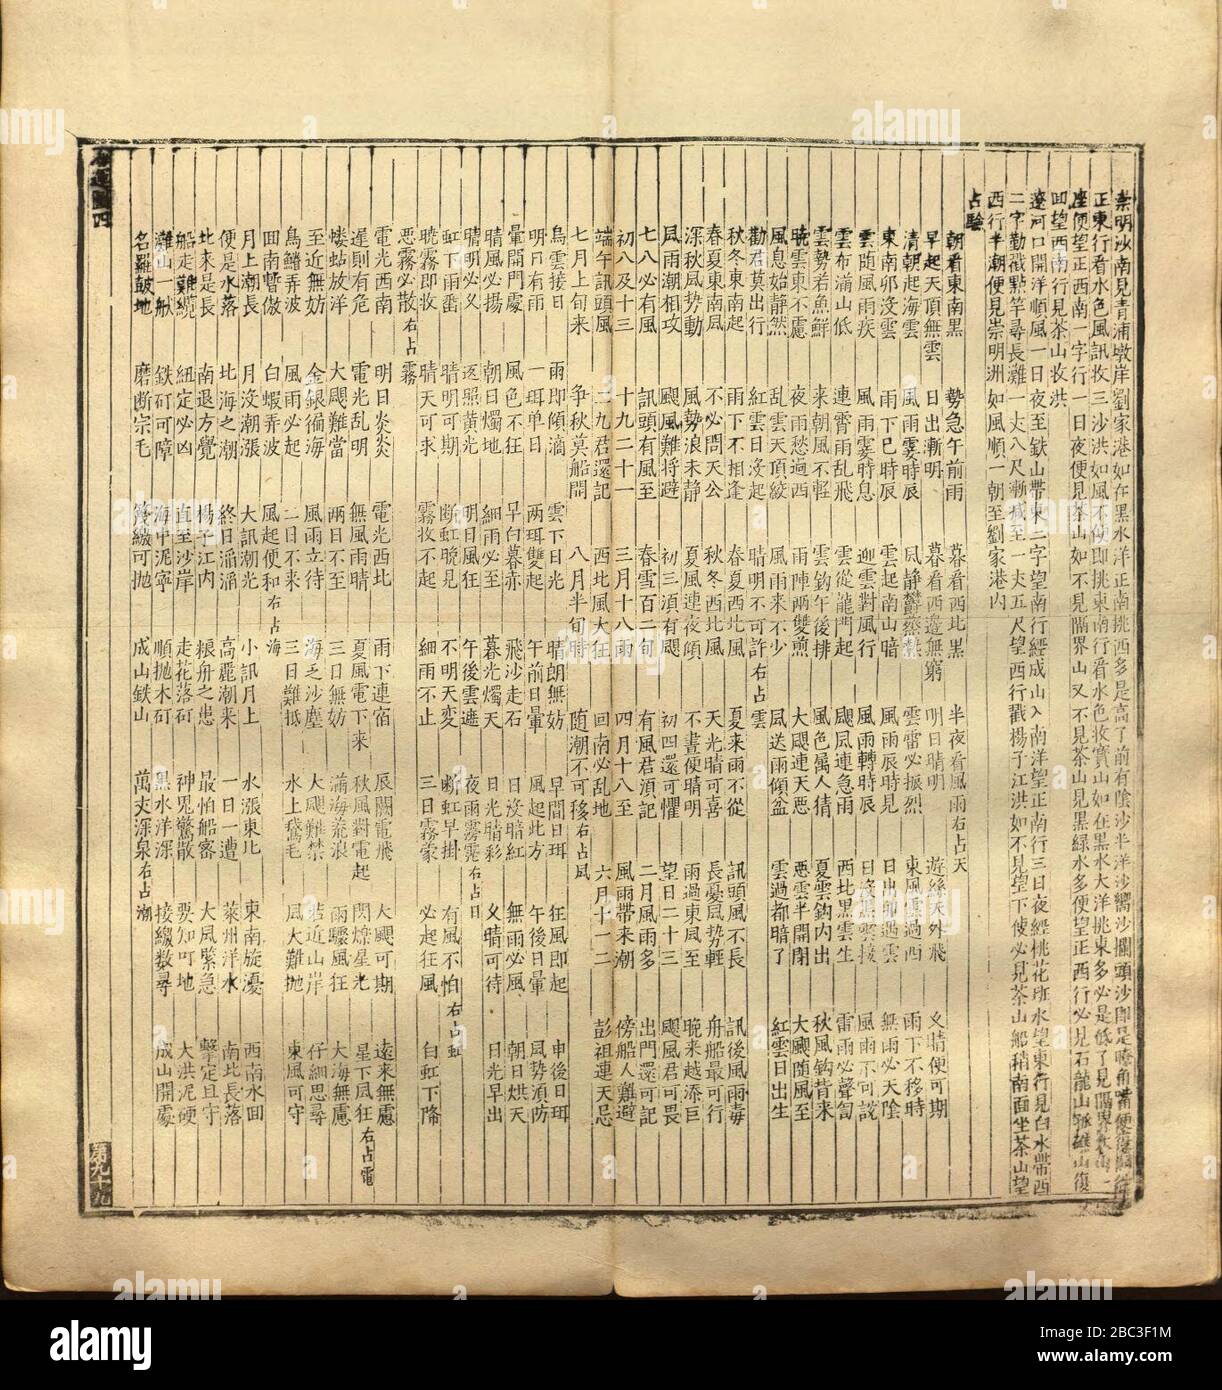 崇明沙南見青浦墩岸劉家港如在黑水洋正南挑西多是高了前有陰沙半洋沙嚮沙攔頭沙即是
正東行看水色風訊收三沙洪如風不便即挑東南行看水色收寶山如在黑水大洋挑東多必是低了見隔界
座便望正西南一字行一日夜便見茶山如不見隔界山又不見茶山見黑綠水多便望正西行必見石龍山 山復
回望西南行見茶山收洪
遼河口開洋順風一日夜至鉄山帶東二字望南行經成山入南洋望正南行三日夜經桃花班水望東行見白水帶西
二字勤戳點竿尋長灘一丈八尺漸減至一丈五尺望西行戳揚子江洪如不見望下使必見茶山船稍南面坐茶山望
西行半潮便見崇明洲如風順一朝至劉家港內
占驗
朝看東南黑 勢急午前雨 暮看西北黑 半夜看風雨右占天
早起天頂無雲 日出漸明 暮看西邊無窮 明日晴明 遊絲天外飛 久晴便可期
清朝起海雲 風雨霎時辰 風靜鬱蒸熱 雲雷必振烈 東風雲過西 雨下不移時
東南卯没雲 雨下巳時辰 雲起南山暗 風雨辰時見 日出卯遇雲 無雨必天陰
雲隨風雨疾 風雨霎時息 迎雲對風行 風雨轉時辰 日沒黑雲接 風雨不可說
雲布滿山低 連霄雨亂飛 雲從龍門起 颶風連急雨 西北黑雲生 雷雨必聲訇
雲勢若魚鮮 來朝風不輕 雲鈎午後排 風色属人猜 夏雲鈎內出 秋風鈎背來
曉雲東不慮 夜雨愁過西 雨陣兩雙煎 大颶連天惡 惡雲半開閉 大颶隨風至
風息始靜然 亂雲天頂絞 風雨來不少 風送雨傾盆 雲過都暗了 紅雲日出生
勸君莫出行 紅雲日没起 晴明不可許右占雲
秋冬東南起 雨下不相逢 春夏西北風 夏來雨不從 訊頭風不長 訊後風雨毒
春夏東南風 不必問天公 秋冬西北風 天光晴可喜 長憂風势輕 舟船最可行
深秋風势動 風勢浪未靜 夏風連夜傾 不晝便晴明 雨過東風至 晚來越添巨
風雨潮相攻 颶風難將避 初三須有颶 初四還可懼 望日二十三 颶風君可畏
七八必有風 訊頭有風至 春雪百二旬 有風君須記 二月風雨多 出門還可記
初八及十三 十九二十一 三月十八雨 四月十八至 風雨帶來潮 傍船人難避
端午訊頭風 二九君還記 西北風大狂 回南必亂地 六月十一二 彭祖連天忌
七月上旬來 爭秋莫船開 八月半旬時 随潮不可移右占風
烏雲接日 雨即傾滴 雲下日光 晴朗無妨 早間日珥 狂風即起 申後日珥
明日有雨 一珥单日 两珥雙起 午前日暈 風起此方 午後日暈 風势須防
暈開門處 風色不狂 早白暮赤 飛沙走石 日没暗紅 無雨必風 朝日烘天
晴風必揚 朝日燭地 細雨必至 暮光燭天 日光晴彩 久晴可待 日光早出
晴明必久 逐照黄光 明日風狂 午後雲遮 夜雨霧霑右占日
虹下雨垂 晴明可期 断虹晚見 不明天変 断虹早掛 有風不怕右占虹
曉霧即收 晴天可求 霧收不起 細雨不止 三日霧蒙 必起狂風 白虹下降
惡霧必散右占霧
電光西南 明日炎炎 電光西北 雨下連宿 辰闕電飛 大颶可期 遠來無慮
遲則有危 電光乱明 無風雨晴 夏風電下來 秋風對電起 閃爍星光 星下風狂右占電
蝼蛄放洋 大颶難當 两日不至 三日無妨 滿海荒浪 雨驟風狂 大海無慮
至近無妨 金銀徧海 風雨立待 海乏沙塵 大颶難禁 若近山岸 仔細思尋
烏鰭弄波 風雨必起 二日不來 三日難抵 水上鵞毛 風大難抛 東風可守
回南暫傲 白蝦弄波 風起便和右占海
月上潮長 月没潮漲 大訊潮光 小訊月上 水漲東北 東南旋濩 西南水回
便是水落 北海之潮 終日滔滔 高麗潮來 一日一遭 萊州洋水 南北長落
北來是長 南退方覺 楊子江內 粮舟之患 最怕船密 大風緊急 擊定且守
船走難纜 紐定必凶 直至沙岸 走花落矴 神鬼驚散 要知叮地 大洪泥硬
灘山一般 鉄矴可障 海中泥寧 順抛木矴 黑水洋深 接纜数尋 成山開處
名羅皷地 磨断宗毛 篾纜可抛 成山鉄山 萬丈深泉右占潮
第九十九
alamy
2BC3F1M
www.alamy.com